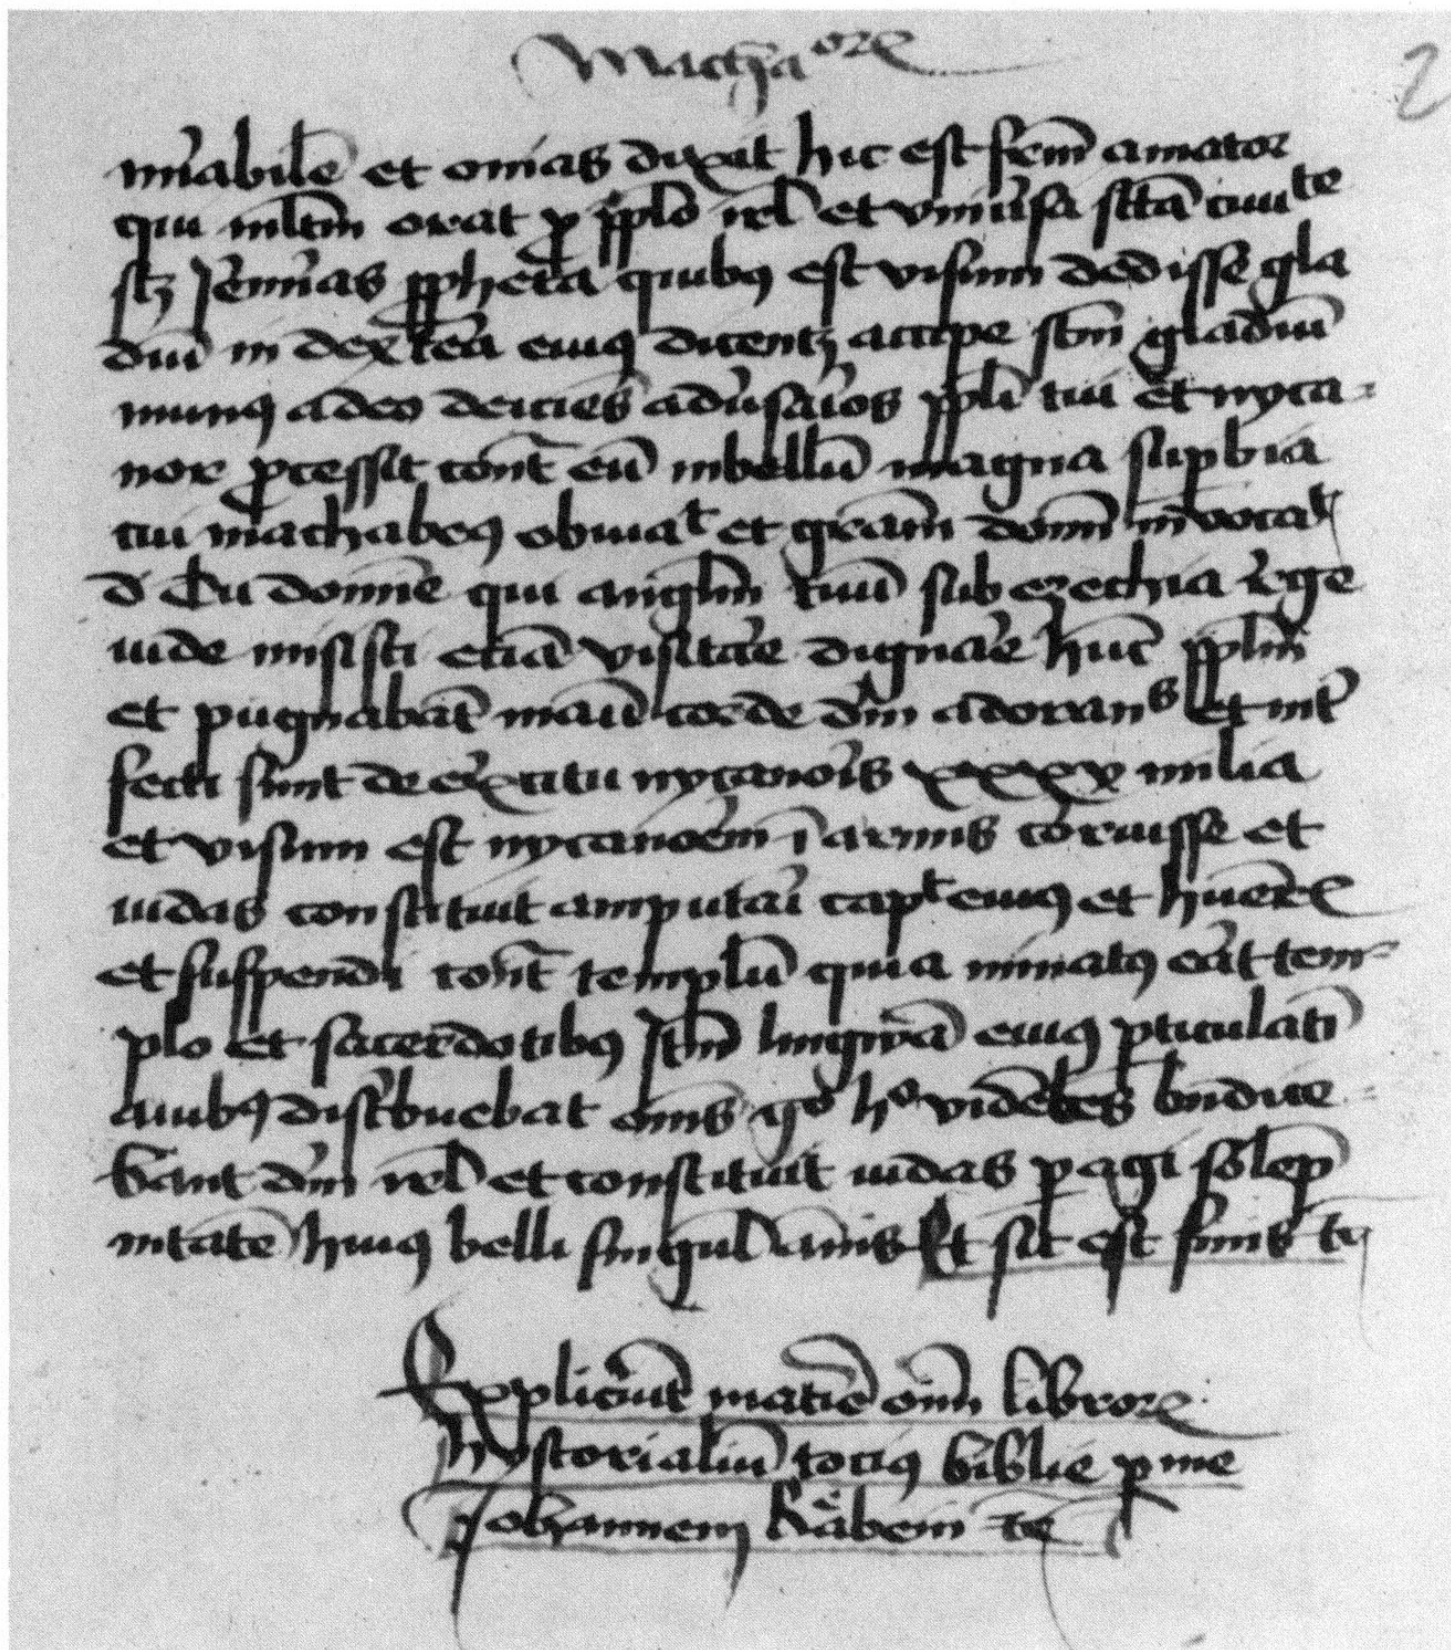 Mach̄aorꝝ
2
mͥabilē et onias dixit hic est fr̄m amator
qui ml̄tm orat ꝓ ppl̄o isrl̄ et vniu̕sa sc̄tā ciuite
scꝫ Jeremias ꝓpheta quibꝯ est visum dedisse gla
diū in dext̄ea eiuꝯ dicentꝫ accipe sc̄m gladiū
munꝯ a deo deicies adu̕sarios ppl̄i tui et nyca-
nor ꝓcessit cont̄ eū in bellū magna suꝑbia
cui machabeꝯ obuiat et gr̄am domī inuocat
d Tu domine qui angl̄m tuū sub ezechia rege
iude misisti eciā visitare dignare hūc ppl̄m
et pugnabāt manu corde dn̄m adorans et int̕
fecti sunt de exercitu nycanoris xxxxv milia
et visum est nycanorem ī armis coruisse et
iudas constituit amputari capt eiuꝯ et humerꝝ
et suspendi cont̄ templū quia minatꝯ erat tem-
plo et sacerdotibꝯ Jt̄m lingwā eiuꝯ ꝑticulatī
auibꝯ distͥbuebat om̄s gͦ hͦ videntes bn̄dice
bant dn̄m isrl̄ et constituit iudas ꝑagi solep̄
nitatē huiꝯ belli singul̄ annis Et sic est finis ꝛc
Expliciūt mat̄ie om̄ librorꝝ
hystorialiū tociꝯ biblie ꝑ me
Johannem Råbein ꝛc